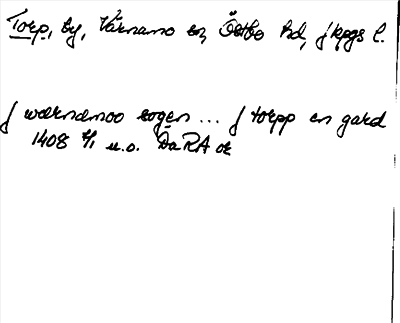 Torp, by, Värnamo sn, Östbo hd, Jkpgs l.
J wærnamoo sogen ... J torpp en gard
1408 4/1 u.o. DaRA or